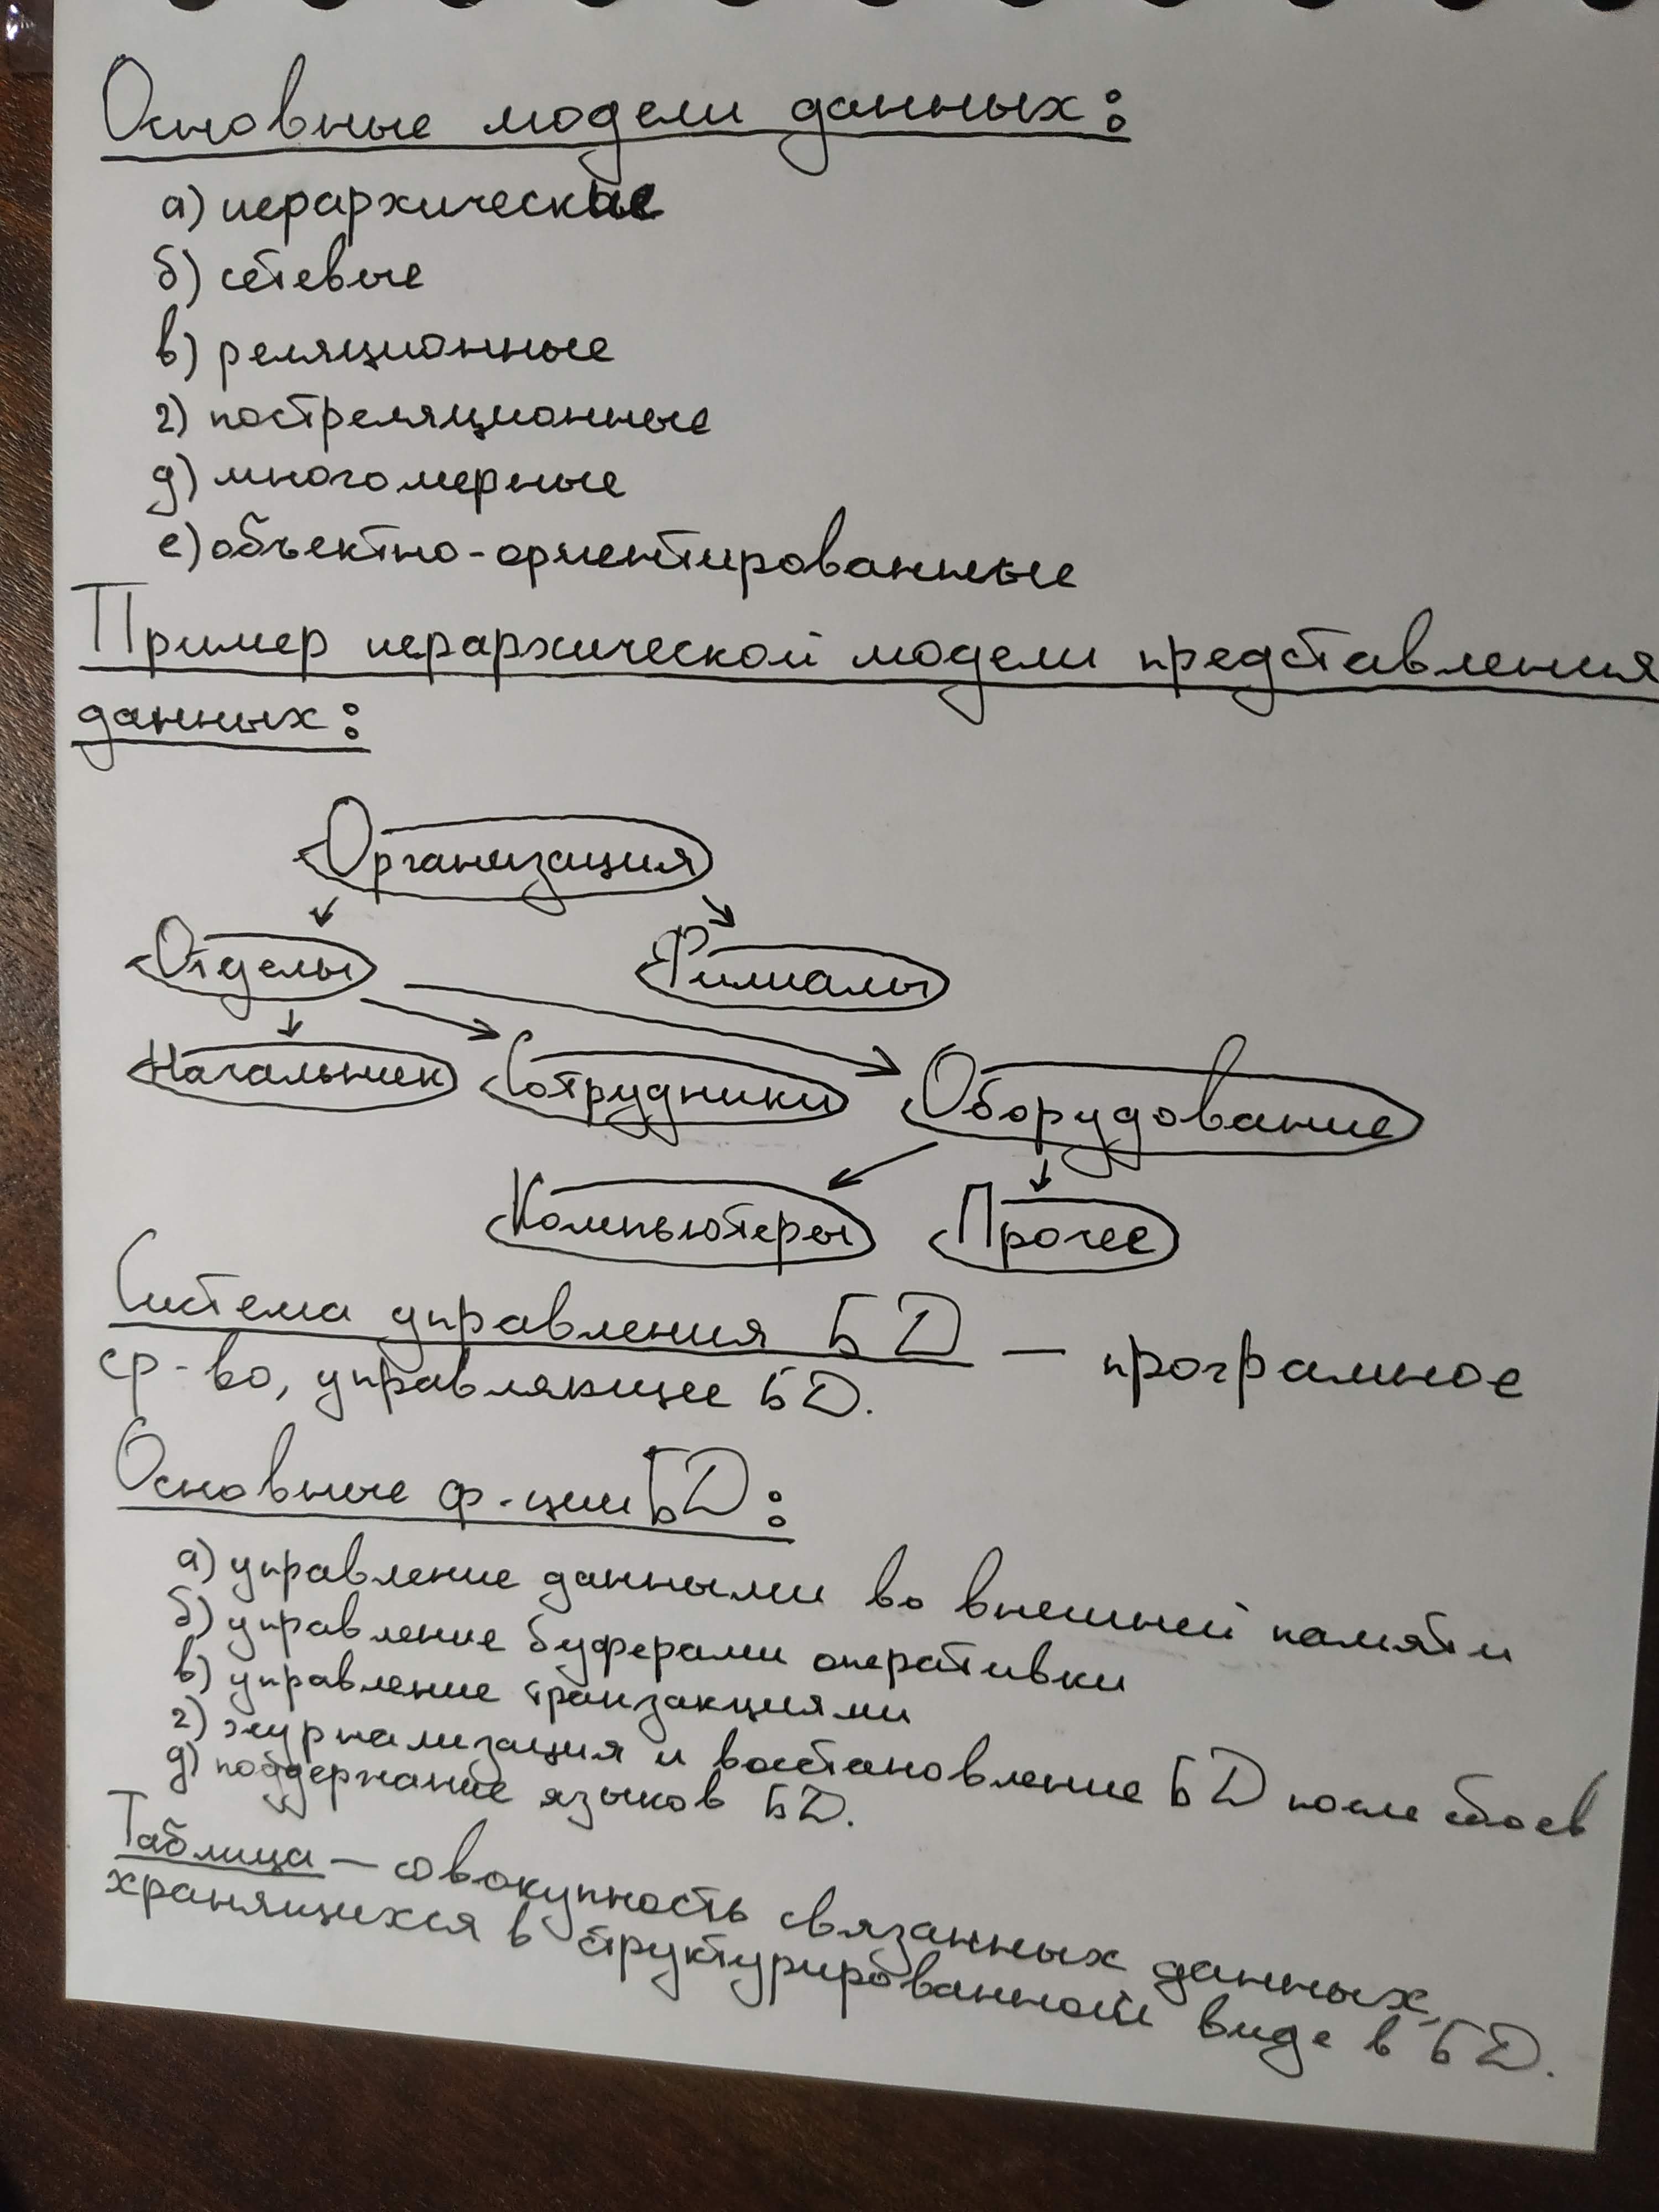 Основные модели данных:
а) иерархические
б) сетевые
в) реляционные
г) постреляционные
д) многомерные
е) объектно-ориентированные
Пример иерархической модели представления
данных:
Организация
Отделы
Филиалы
Начальник
Сотрудники
Оборудование
Компьютеры
Прочее
Система управления БД — програмное
ср-во, управляющее БД.
Основные ф-ции БД:
а) управление данными во внешней памяти
б) управление буферами оперативки
в) управление транзакциями
г) журнализация и востановление БД после сбоев
д) поддержание языков БД.
Таблица — совокупность связанных данных,
хранящихся в структурированном виде в БД.